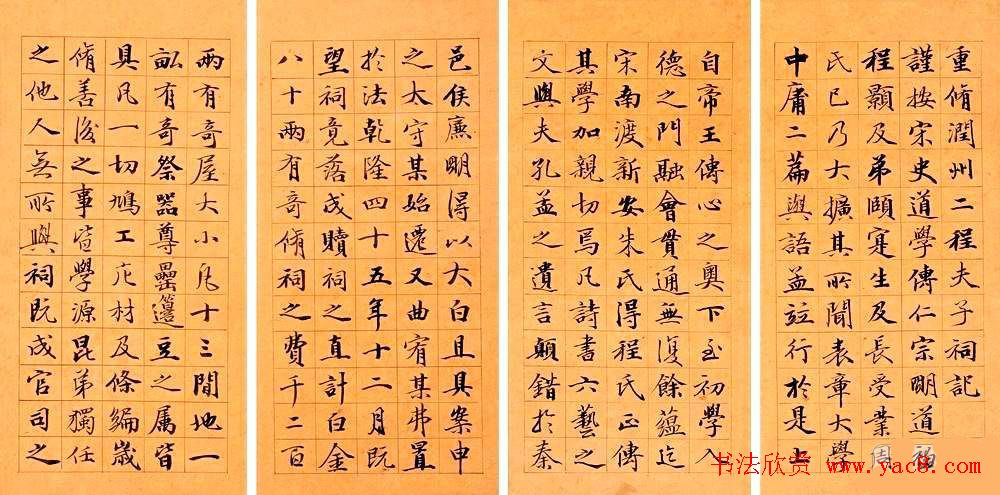 重脩潤州二程夫子祠記
謹按宋史道學傳仁宗明道初
程顥及弟頤寔生及長受業周
氏已乃大擴其所聞表章大學
中庸二篇與語孟並行於是上
自帝王傳心之奧下至初學入
德之門融會貫通無復餘蘊迄
宋南渡新安朱氏得程氏正傳
其學加親切焉凡詩書六藝之
文與夫孔孟之遺言顛錯於秦
邑侯廉明得以大白且具案申
之太守某始遷又曲宥某弗置
於法乾隆四十五年十二月既
望祠竟落成贖祠之直計白金
八十兩有奇脩祠之費千二百
兩有奇屋大小凡十三間地一
畝有奇祭器尊罍籩豆之属皆
具凡一切鳩工庀材及條編歲
脩善後之事宣學源昆弟獨任
之他人無所與祠既成官司之
书法欣赏 www.yac8.com